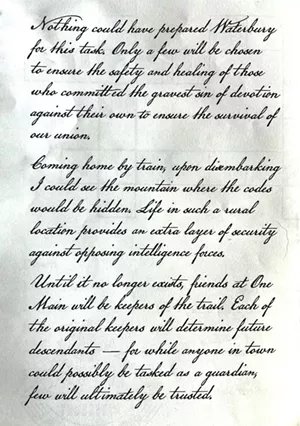 Nothing could have prepared Waterbury
for this task. Only a few will be chosen
to ensure the safety and healing of those
who committed the gravest sin of devotion
against their own to ensure the survival of
our union.
Coming home by train, upon disembarking
I could see the mountain where the codes
would be hidden. Life in such a rural
location provides an extra layer of security
against opposing intelligence forces.
Until it no longer exists, friends at One
Main will be keepers of the trail. Each of
the original keepers will determine future
descendants — for while anyone in town
could possibly be tasked as a guardian,
few will ultimately be trusted.